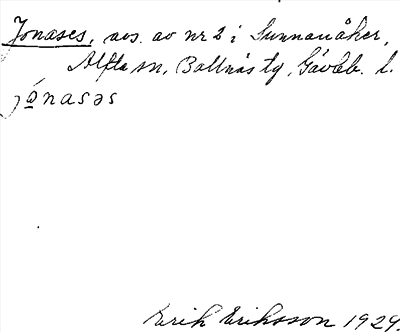 Jonases, avs. av nr 2 i Sunnanåker,
Alfta sn, Bollnäs tg, Gävleb. l.
jónasəs
Erik Eriksson 1929.